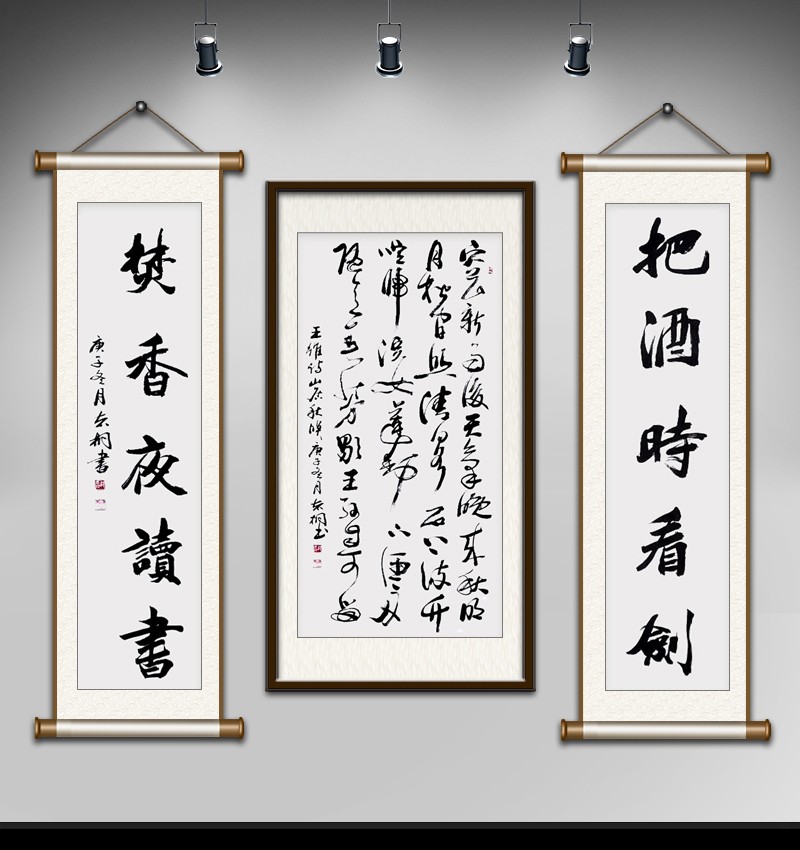 把酒時看劍
空山新雨後天氣晚來秋明
月松間照清泉石上流竹
喧歸浣女蓮動下漁舟
隨意春芳歇王孫自可留
王維诗山居秋暝庚子冬月桐书
焚香夜讀書
庚子冬月桐書